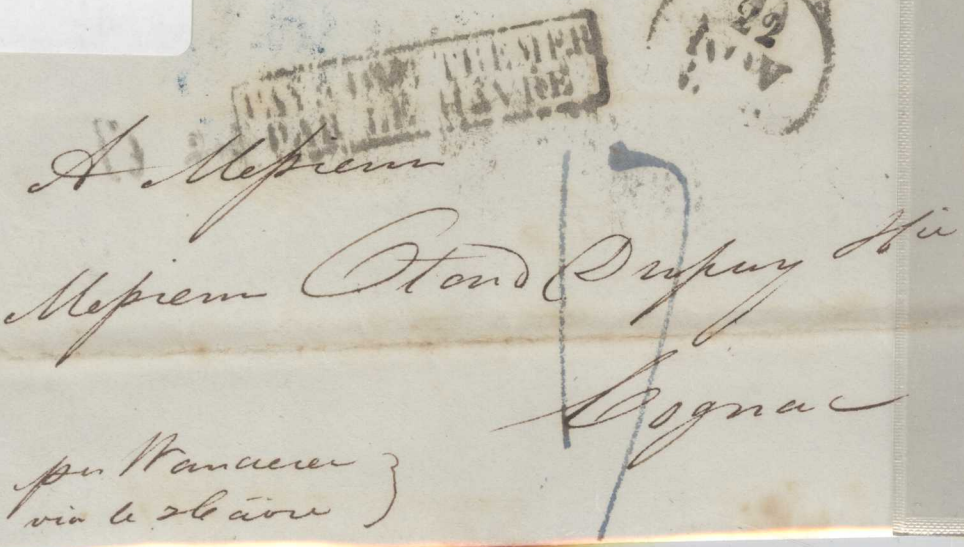 22
PAYS D'OUTREMER
PAR LE HAVRE
A Messieurs
Messieurs Otard Dupuy &
Cognac
17
per Wanderer
via le Hâvre